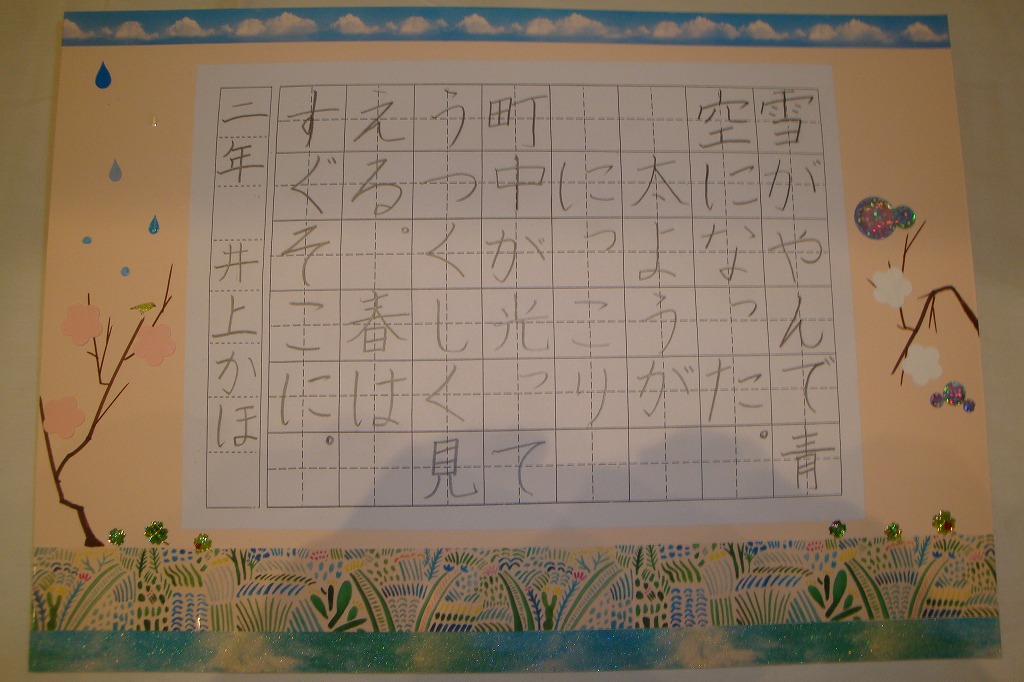 雪がやんで青
空になった。
太ようが
につこり
町中が光って
うつくしく見
える。春は
すぐそこに。
二年 井上かほ